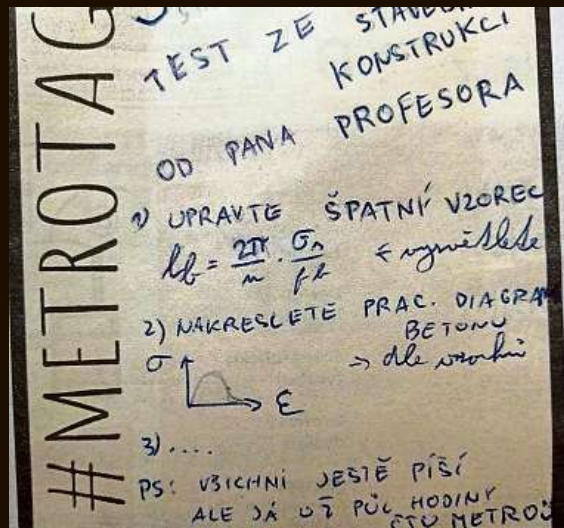 #METROTAG
TEST ZE STAVEBN
KONSTRUKCÍ
OD PANA PROFESORA
1) UPRAVTE ŠPATNÍ VZOREC
lb = 2π/n · σn/fb ← vysvětlete
2) NAKRESLETE PRAC. DIAGRAM
BETONU
σ → dle
ε
3) ....
PS: VŠICHNI JEŠTĚ PÍŠÍ
ALE JÁ UŽ PŮL HODINY
ČTU METRO